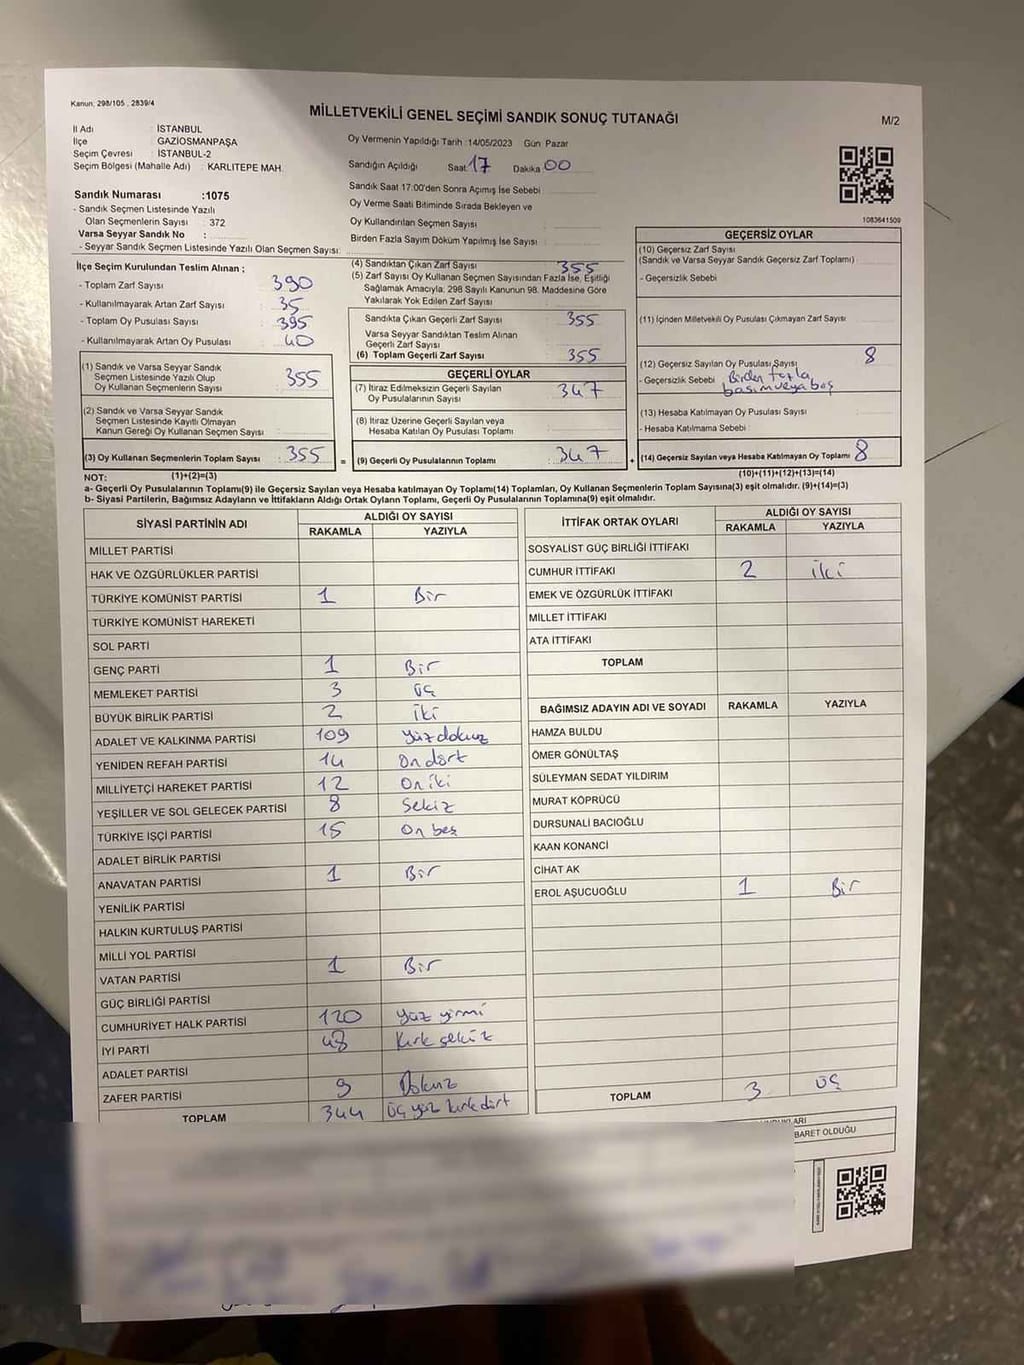 Kanun, 298/105 , 2839/4
MİLLETVEKİLİ GENEL SEÇİMİ SANDIK SONUÇ TUTANAĞI
M/2
İl Adı : İSTANBUL
İlçe : GAZİOSMANPAŞA
Seçim Çevresi : İSTANBUL-2
Seçim Bölgesi (Mahalle Adı) : KARLITEPE MAH.
Oy Vermenin Yapıldığı Tarih :14/05/2023 Gün Pazar
Sandığın Açıldığı Saat 17 Dakika 00
Sandık Saat 17.00'den Sonra Açımış İse Sebebi
Oy Verme Saati Bitiminde Sırada Bekleyen ve
Oy Kullandırılan Seçmen Sayısı :
Birden Fazla Sayım Döküm Yapılmış İse Sayısı :
1083641509
Sandık Numarası :1075
- Sandık Seçmen Listesinde Yazılı
Olan Seçmenlerin Sayısı : 372
Varsa Seyyar Sandık No :
- Seyyar Sandık Seçmen Listesinde Yazılı Olan Seçmen Sayısı:
İlçe Seçim Kurulundan Teslim Alınan ;
- Toplam Zarf Sayısı : 390
- Kullanılmayarak Artan Zarf Sayısı : 35
- Toplam Oy Pusulası Sayısı : 395
- Kullanılmayarak Artan Oy Pusulası : 40
(1) Sandık ve Varsa Seyyar Sandık
Seçmen Listesinde Yazılı Olup
Oy Kullanan Seçmenlerin Sayısı : 355
(2) Sandık ve Varsa Seyyar Sandık
Seçmen Listesinde Kayıtlı Olmayan
Kanun Gereği Oy Kullanan Seçmen Sayısı :
(3) Oy Kullanan Seçmenlerin Toplam Sayısı : 355
(1)+(2)=(3)
(4) Sandıktan Çıkan Zarf Sayısı : 355
(5) Zarf Sayısı Oy Kullanan Seçmen Sayısından Fazla İse, Eşitliği
Sağlamak Amacıyla; 298 Sayılı Kanunun 98. Maddesine Göre
Yakılarak Yok Edilen Zarf Sayısı :
Sandıkta Çıkan Geçerli Zarf Sayısı : 355
Varsa Seyyar Sandıktan Teslim Alınan
Geçerli Zarf Sayısı :
(6) Toplam Geçerli Zarf Sayısı : 355
GEÇERLİ OYLAR
(7) İtiraz Edilmeksizin Geçerli Sayılan
Oy Pusulalarının Sayısı : 347
(8) İtiraz Üzerine Geçerli Sayılan veya
Hesaba Katılan Oy Pusulası Toplamı :
= (9) Geçerli Oy Pusulalarının Toplamı : 347 +
GEÇERSİZ OYLAR
(10) Geçersiz Zarf Sayısı
(Sandık ve Varsa Seyyar Sandık Geçersiz Zarf Toplamı) :
- Geçersizlik Sebebi :
(11) İçinden Milletvekili Oy Pusulası Çıkmayan Zarf Sayısı :
(12) Geçersiz Sayılan Oy Pusulası Sayısı : 8
- Geçersizlik Sebebi : Birden fazla
basım veya boş
(13) Hesaba Katılmayan Oy Pusulası Sayısı :
- Hesaba Katılmama Sebebi :
(14) Geçersiz Sayılan veya Hesaba Katılmayan Oy Toplamı : 8
(10)+(11)+(12)+(13)=(14)
NOT:
a- Geçerli Oy Pusulalarının Toplamı(9) ile Geçersiz Sayılan veya Hesaba katılmayan Oy Toplamı(14) Toplamları, Oy Kullanan Seçmenlerin Toplam Sayısına(3) eşit olmalıdır. (9)+(14)=(3)
b- Siyasi Partilerin, Bağımsız Adayların ve İttifakların Aldığı Ortak Oyların Toplamı, Geçerli Oy Pusulalarının Toplamına(9) eşit olmalıdır.
SİYASİ PARTİNİN ADI
ALDIĞI OY SAYISI
RAKAMLA YAZIYLA
MİLLET PARTİSİ
HAK VE ÖZGÜRLÜKLER PARTİSİ
TÜRKİYE KOMÜNİST PARTİSİ 1 Bir
TÜRKİYE KOMÜNİST HAREKETİ
SOL PARTİ
GENÇ PARTİ 1 Bir
MEMLEKET PARTİSİ 3 üç
BÜYÜK BİRLİK PARTİSİ 2 iki
ADALET VE KALKINMA PARTİSİ 109 yüz dokuz
YENİDEN REFAH PARTİSİ 14 On dört
MİLLİYETÇİ HAREKET PARTİSİ 12 On iki
YEŞİLLER VE SOL GELECEK PARTİSİ 8 Sekiz
TÜRKİYE İŞÇİ PARTİSİ 15 On beş
ADALET BİRLİK PARTİSİ
ANAVATAN PARTİSİ 1 Bir
YENİLİK PARTİSİ
HALKIN KURTULUŞ PARTİSİ
MİLLİ YOL PARTİSİ
VATAN PARTİSİ 1 Bir
GÜÇ BİRLİĞİ PARTİSİ
CUMHURİYET HALK PARTİSİ 120 yüz yirmi
İYİ PARTİ 48 kırk sekiz
ADALET PARTİSİ
ZAFER PARTİSİ 9 Dokuz
TOPLAM 344 üç yüz kırk dört
İTTİFAK ORTAK OYLARI
ALDIĞI OY SAYISI
RAKAMLA YAZIYLA
SOSYALİST GÜÇ BİRLİĞİ İTTİFAKI
CUMHUR İTTİFAKI 2 iki
EMEK VE ÖZGÜRLÜK İTTİFAKI
MİLLET İTTİFAKI
ATA İTTİFAKI
TOPLAM
BAĞIMSIZ ADAYIN ADI VE SOYADI RAKAMLA YAZIYLA
HAMZA BULDU
ÖMER GÖNÜLTAŞ
SÜLEYMAN SEDAT YILDIRIM
MURAT KÖPRÜCÜ
DURSUNALİ BACIOĞLU
KAAN KONANCİ
CİHAT AK
EROL AŞUCUOĞLU 1 Bir
TOPLAM 3 üç
BARET OLDUĞU